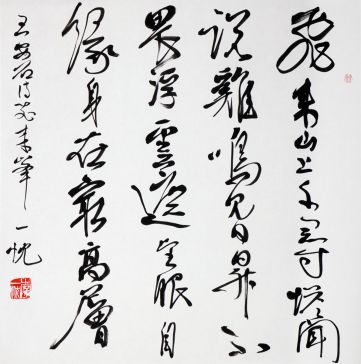 飛来山上千尋塔聞
說雞鳴見日昇不
畏浮雲遮望眼自
緣身在最高層
王安石詩飛来峰 一忱